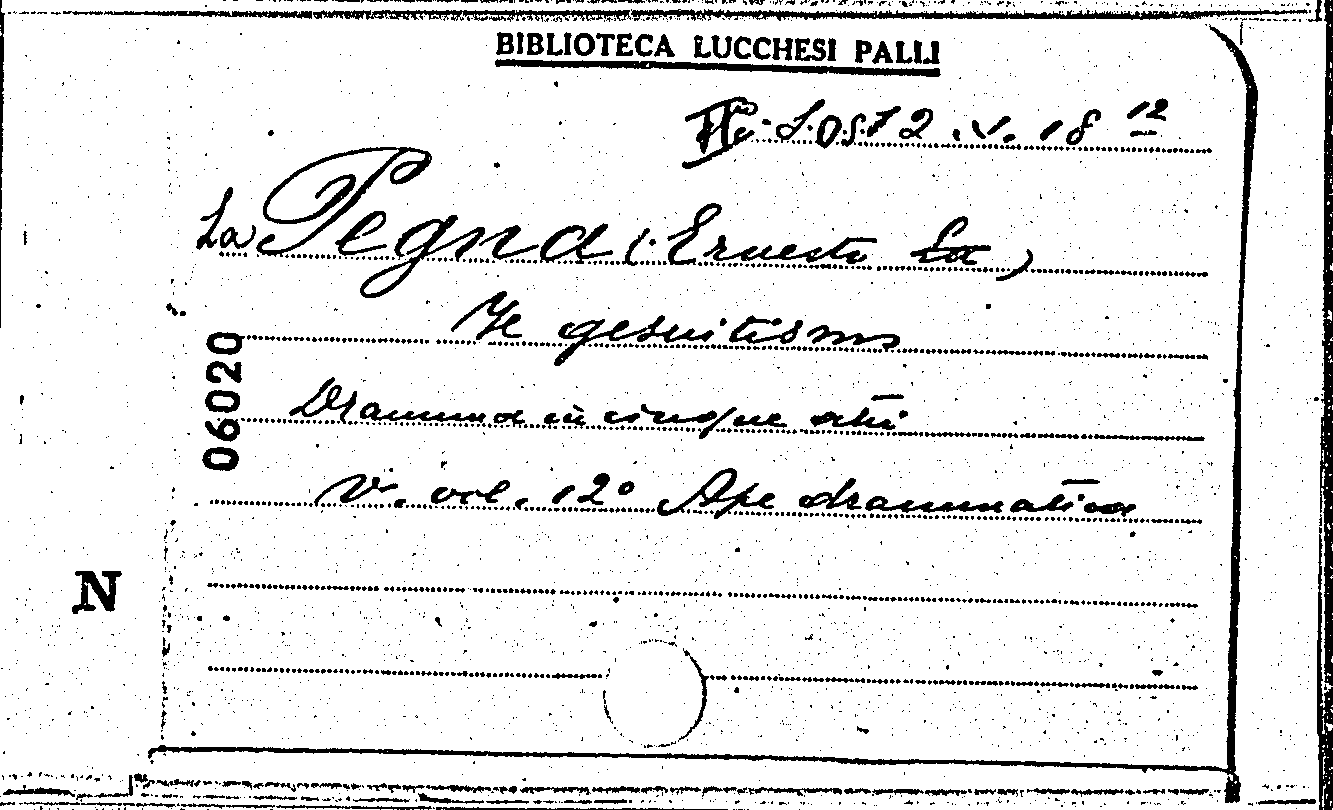 BIBLIOTECA LUCCHESI PALLI
2. V. 18 12
La Pegna (Ernesto La)
Il gesuitismo
Dramma in cinque atti
V. vol. 12° Ape drammatica
06020
N